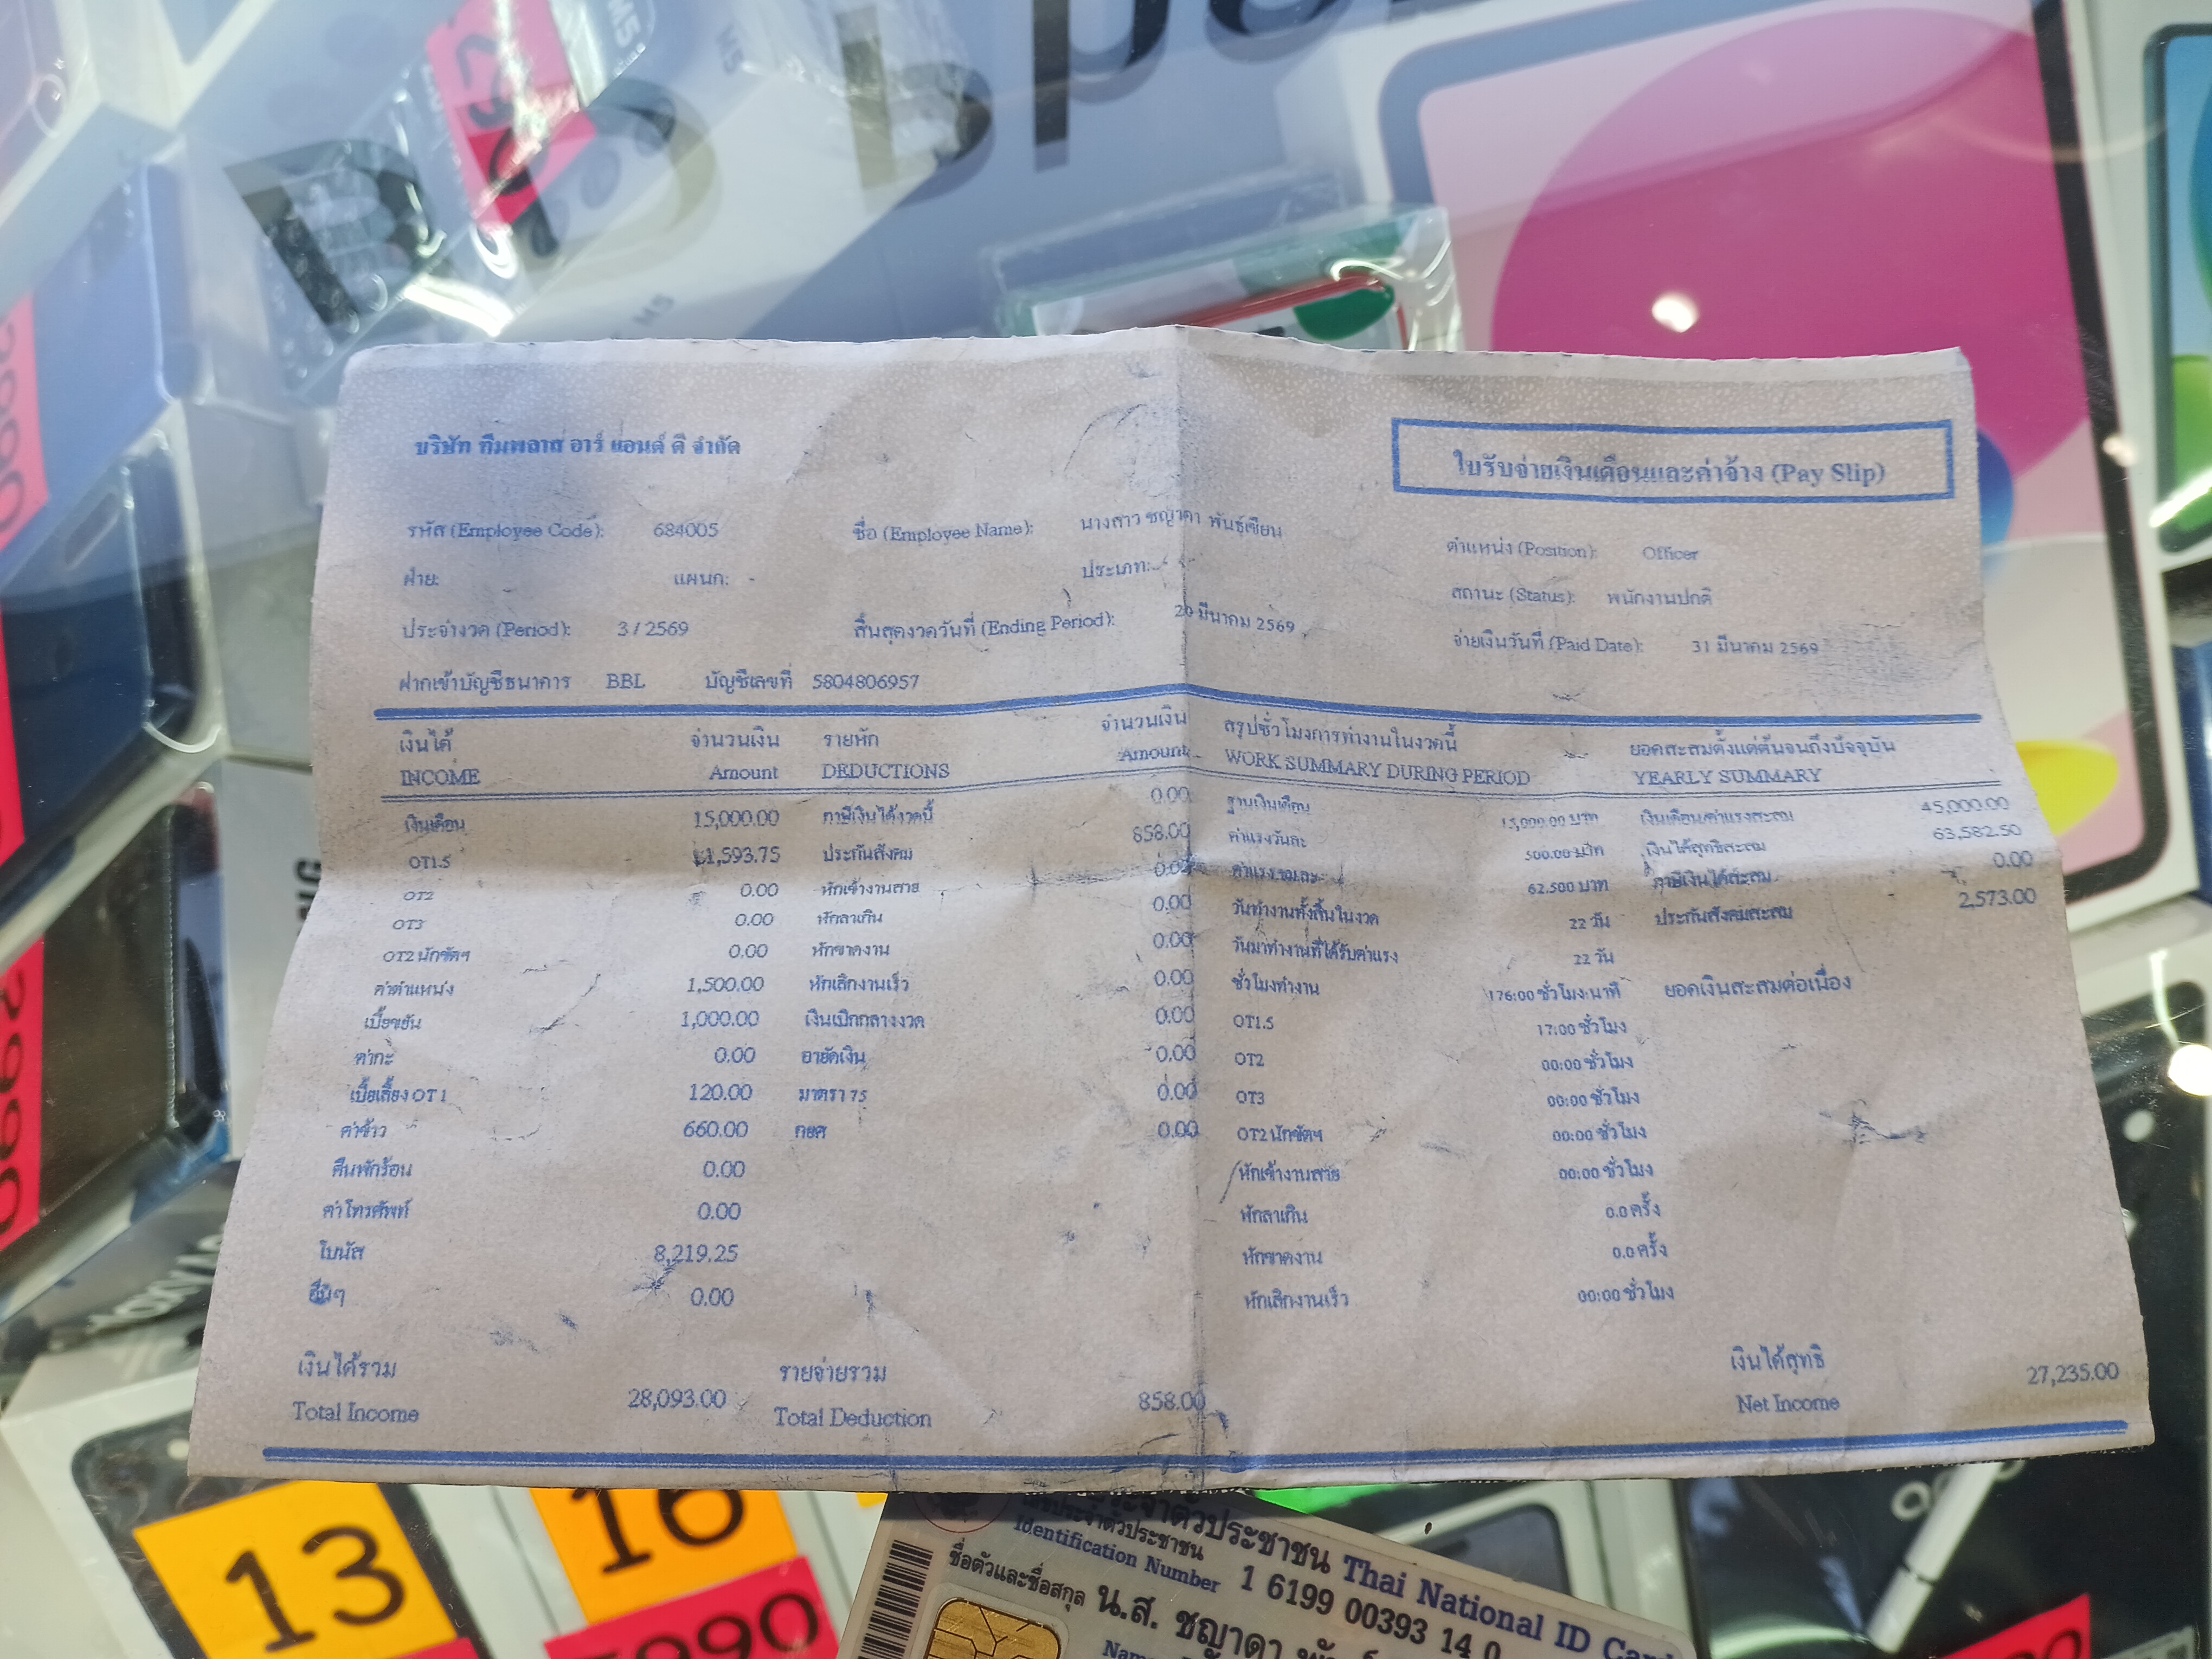 บริษัท ทีมพลาส อาร์ แอนด์ ดี จำกัด
ใบรับจ่ายเงินเดือนและค่าจ้าง (Pay Slip)
รหัส (Employee Code): 684005 ชื่อ (Employee Name): นางสาว ชญาดา พันธุ์เขียน ตำแหน่ง (Position): Officer
ฝ่าย: แผนก: - ประเภท: - สถานะ (Status): พนักงานปกติ
ประจำงวด (Period): 3 / 2569 สิ้นสุดงวดวันที่ (Ending Period): 20 มีนาคม 2569 จ่ายเงินวันที่ (Paid Date): 31 มีนาคม 2569
ฝากเข้าบัญชีธนาคาร BBL บัญชีเลขที่ 5804806957
เงินได้ จำนวนเงิน รายหัก จำนวนเงิน สรุปชั่วโมงการทำงานในงวดนี้ ยอดสะสมตั้งแต่ต้นจนถึงปัจจุบัน
INCOME Amount DEDUCTIONS Amount WORK SUMMARY DURING PERIOD YEARLY SUMMARY
เงินเดือน 15,000.00 ภาษีเงินได้งวดนี้ 0.00 ฐานเงินเดือน 15,000.00 บาท เงินเดือน/ค่าแรงสะสม 45,000.00
OT1.5 1,593.75 ประกันสังคม 858.00 ค่าแรงวันละ 500.00 บาท เงินได้สุทธิสะสม 63,582.50
OT2 0.00 หักเข้างานสาย 0.00 ค่าแรงชมละ 62.500 บาท ภาษีเงินได้สะสม 0.00
OT3 0.00 หักลาเกิน 0.00 วันทำงานทั้งสิ้นในงวด 22 วัน ประกันสังคมสะสม 2,573.00
OT2 นักขัตฯ 0.00 หักขาดงาน 0.00 วันมาทำงานที่ได้รับค่าแรง 22 วัน
ค่าตำแหน่ง 1,500.00 หักเลิกงานเร็ว 0.00 ชั่วโมงทำงาน 176:00 ชั่วโมง:นาที ยอดเงินสะสมต่อเนื่อง
เบี้ยขยัน 1,000.00 เงินเบิกกลางงวด 0.00 OT1.5 17:00 ชั่วโมง
ค่ากะ 0.00 อายัดเงิน 0.00 OT2 00:00 ชั่วโมง
เบี้ยเลี้ยง OT 1 120.00 มาตรา 75 0.00 OT3 00:00 ชั่วโมง
ค่าข้าว 660.00 กยศ 0.00 OT2 นักขัตฯ 00:00 ชั่วโมง
คืนพักร้อน 0.00 หักเข้างานสาย 00:00 ชั่วโมง
ค่าโทรศัพท์ 0.00 หักลาเกิน 0.0 ครั้ง
โบนัส 8,219.25 หักขาดงาน 0.0 ครั้ง
อื่นๆ 0.00 หักเลิกงานเร็ว 00:00 ชั่วโมง
เงินได้รวม รายจ่ายรวม เงินได้สุทธิ
Total Income 28,093.00 Total Deduction 858.00 Net Income 27,235.00
13
16
990
ประจำตัวประชาชน Thai National ID Card
เลขประจำตัวประชาชน
Identification Number 1 6199 00393 14 0
ชื่อตัวและชื่อสกุล น.ส. ชญาดา